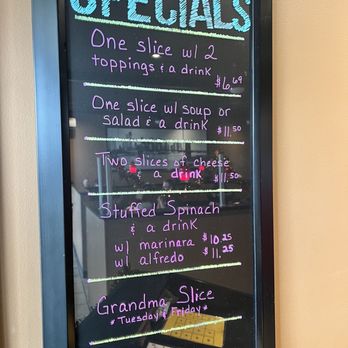 SPECIALS
One slice w/ 2
toppings & a drink
$6.69
One slice w/ soup or
salad & a drink $11.50
Two slices of cheese
& a drink $11.50
Stuffed Spinach
& a drink
w/ marinara $10.25
w/ alfredo $11.25
Grandma Slice
*Tuesday & Friday*